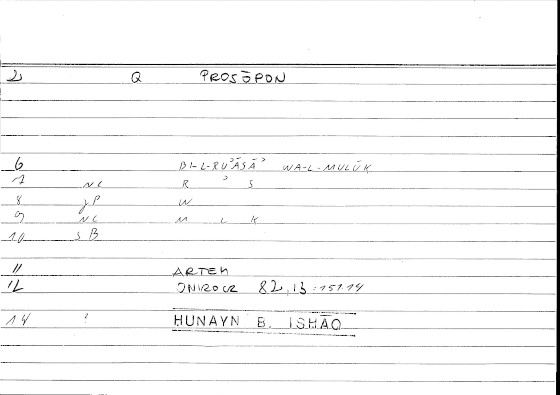 2 Q PROSŌPON
6 BI-L-RUʾASĀʾ WA-L-MULŪK
7 NC R ʾ S
8 JP W
9 NC M L K
10 SB
11 ARTEM
12 ONIROCR 82,13:151.14
14 ! HUNAYN B. ISHĀQ